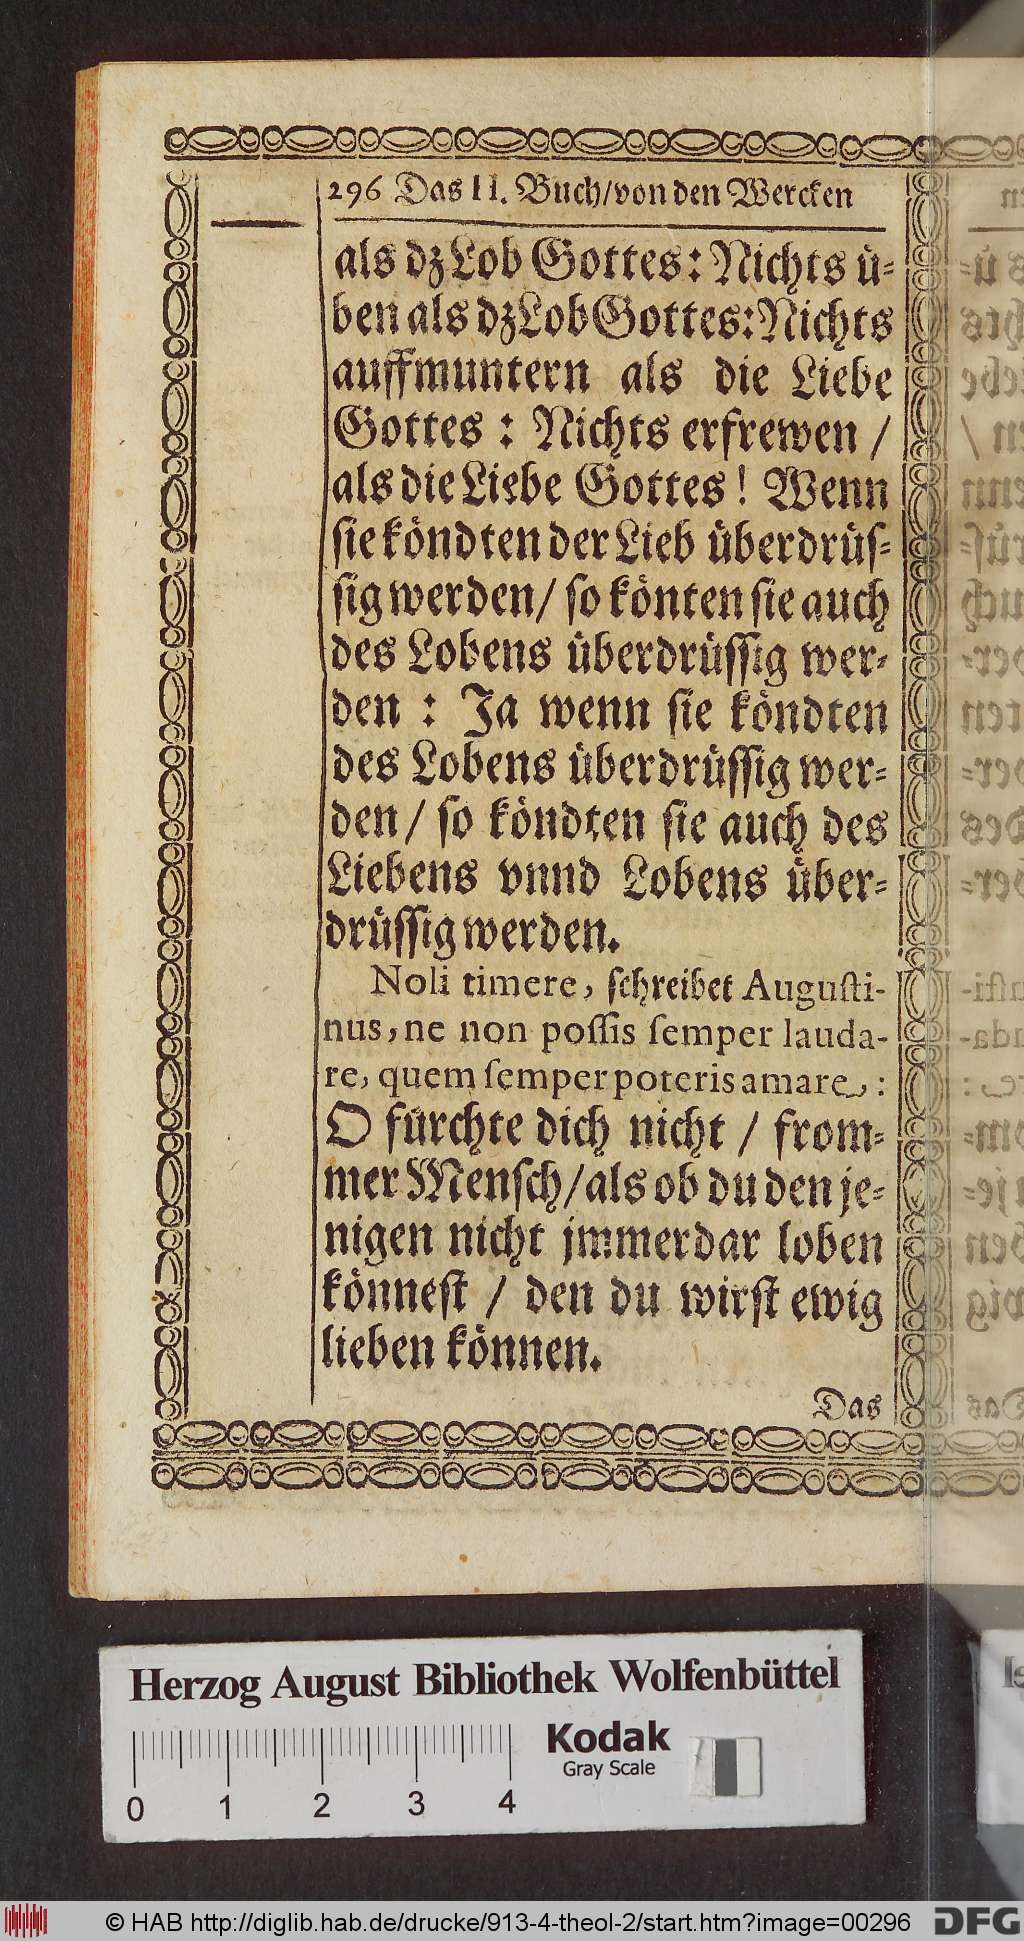 296 Das II. Buch/von den Wercken
als dz Lob Gottes: Nichts ü-
ben als dz Lob Gottes: Nichts
auffmuntern als die Liebe
Gottes : Nichts erfrewen /
als die Liebe Gottes! Wenn
sie köndten der Lieb überdrüs-
sig werden/ so könten sie auch
des Lobens überdrüssig wer-
den : Ja wenn sie köndten
des Lobens überdrüssig wer-
den/ so köndten sie auch des
Liebens vnnd Lobens über-
drüssig werden.
Noli timere, schreibet Augusti-
nus, ne non possis semper lauda-
re, quem semper poteris amare:
O fürchte dich nicht / from-
mer Mensch/als ob du den je-
nigen nicht jmmerdar loben
könnest / den du wirst ewig
lieben können.
Das
Herzog August Bibliothek Wolfenbüttel
Kodak
Gray Scale
0 1 2 3 4
© HAB http://diglib.hab.de/drucke/913-4-theol-2/start.htm?image=00296
DFG